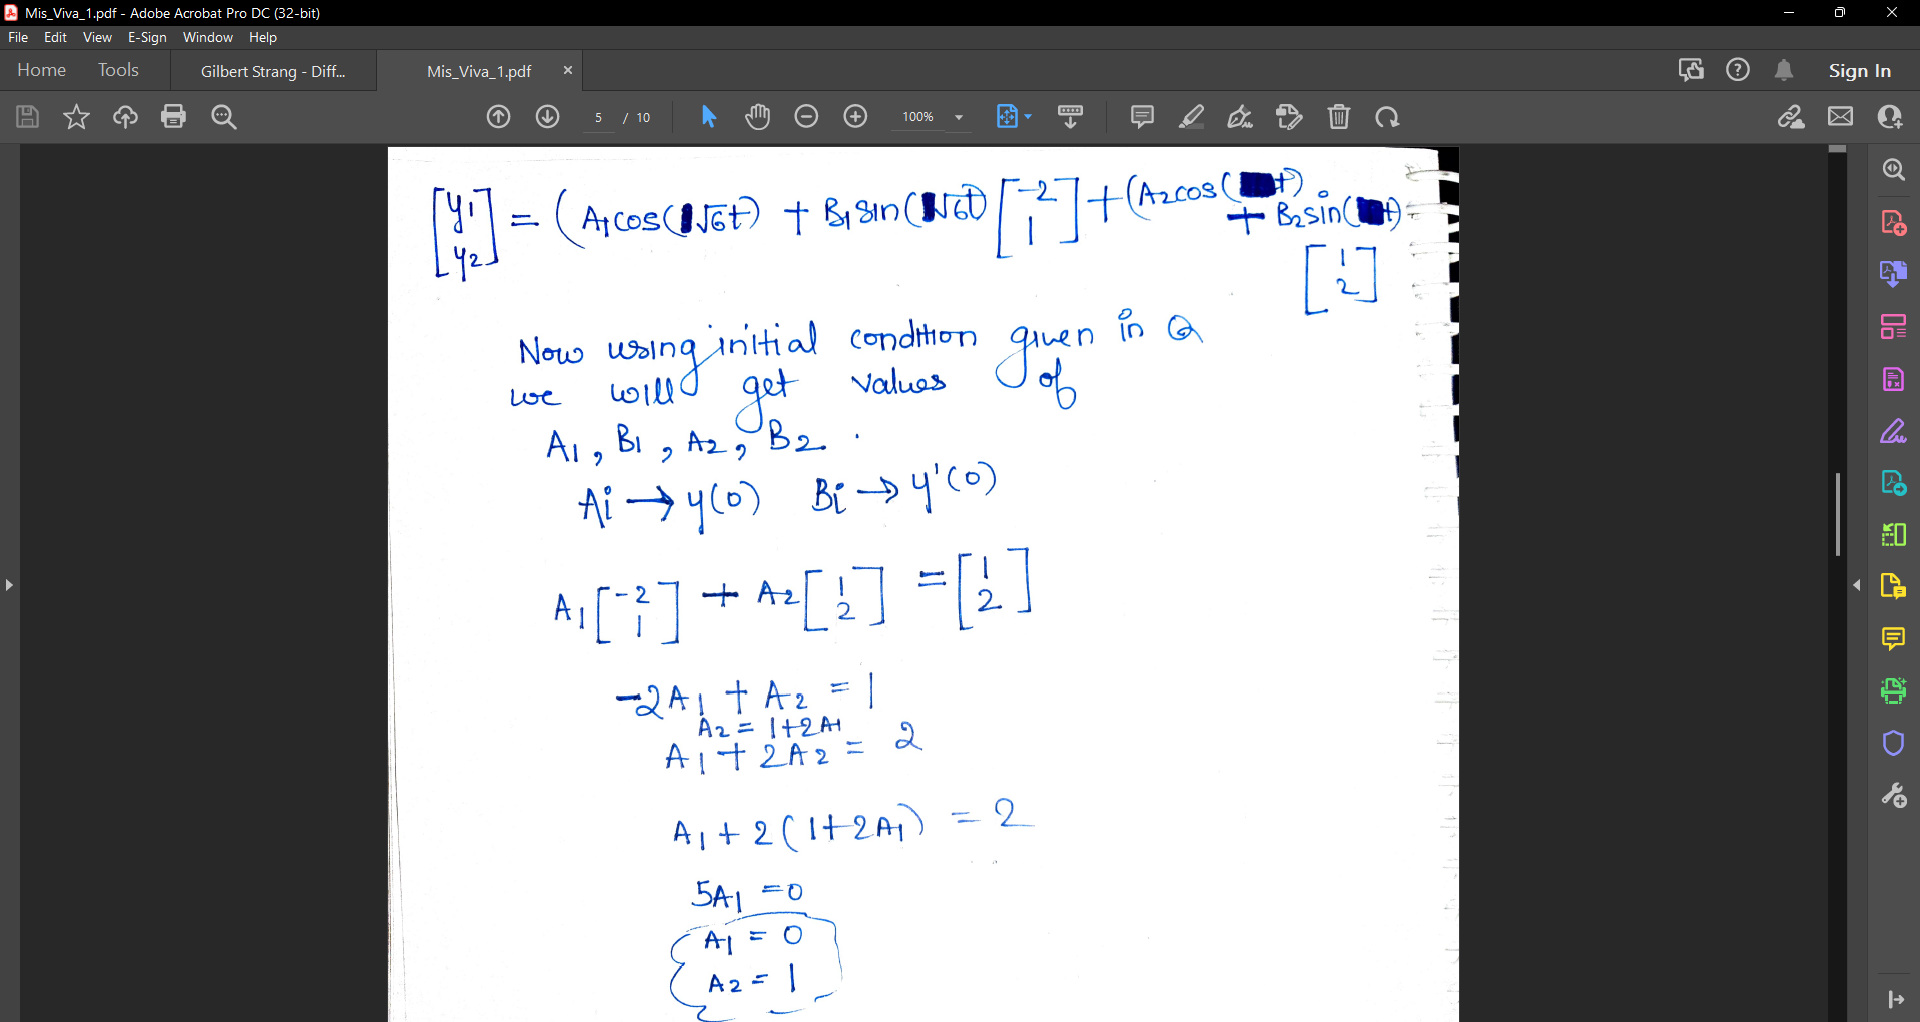 Mis_Viva_1.pdf - Adobe Acrobat Pro DC (32-bit)
File Edit View E-Sign Window Help
Home Tools Gilbert Strang - Diff... Mis_Viva_1.pdf × Sign In
5 / 10 100%
[y1 y2] = (A1cos(√6t) + B1sin(√6t) [-2 1] + (A2cos( t)
+ B2sin( t)
[1 2]
Now using initial condition given in Q
we will get values of
A1, B1, A2, B2.
Ai → y(0) Bi → y'(0)
A1[-2 1] + A2[1 2] = [1 2]
-2A1 + A2 = 1
A2 = 1+2A1
A1 + 2A2 = 2
A1 + 2(1+2A1) = 2
5A1 = 0
A1 = 0
A2 = 1